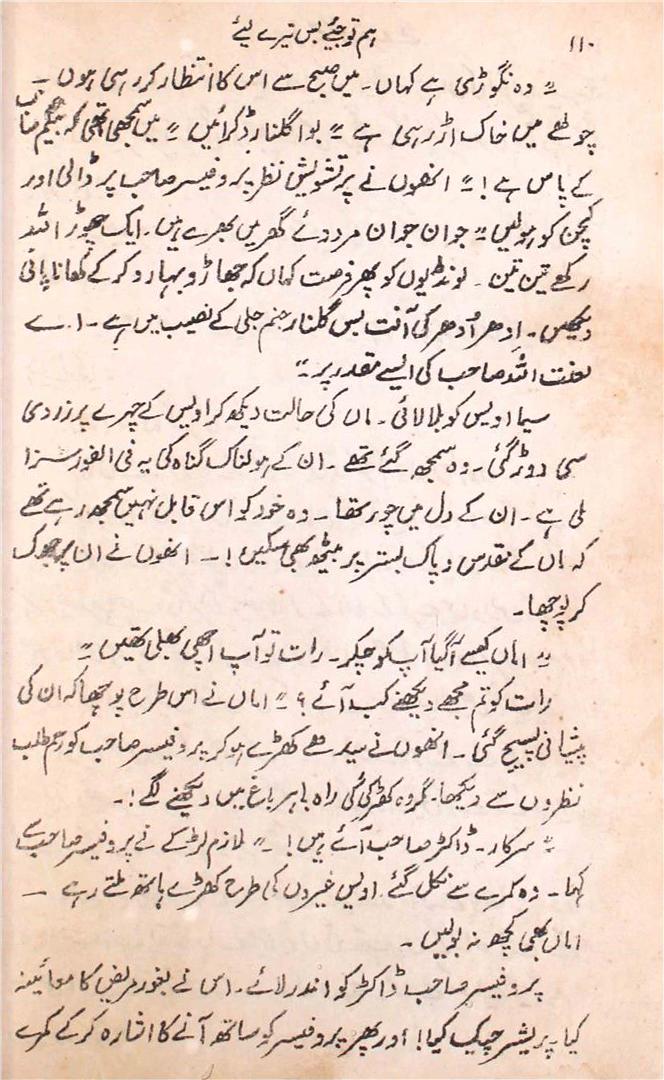 ۱۱۰
ہم تو جئے بس تیرے لیے
" وہ نگوڑی ہے کہاں۔ میں صبح سے اس کا انتظار کر رہی ہوں ۔
چولھے میں خاک اڑ رہی ہے " بوا گلنار ڈکرائیں " میں سمجھی تھی کہ بیگم صاب
کے پاس ہے! " انھوں نے پر تشویش نظر پروفیسر صاحب پر ڈالی اور
کچن کو ہولیں " جوان جوان مردوئے گھر میں بھرے ہیں۔ ایک چھوڑ اللہ
رکھے تین تین ۔ لونڈیوں کو پھر فرصت کہاں کہ جھاڑو بہارو کر کے کھانا پانی
دیکھیں۔ اِدھر اُدھر کی آفت بس گلنار جنم جلی کے نصیب میں ہے ۔ ا۔ے
لعنت اللہ صاحب کی ایسے مقدر پر ۔"
سیما اویس کو بلا لائی۔ ماں کی حالت دیکھ کر اویس کے چہرے پر زردی
سی دوڑ گئی ۔ وہ سمجھ گئے تھے ۔ ان کے ہولناک گناہ کی یہ فی الفور سزا
ملی ہے ۔ ان کے دل میں چور تھا ۔ وہ خود کو اس قابل نہیں سمجھ رہے تھے
کہ ماں کے مقدس و پاک بستر پر بیٹھ بھی سکیں! ۔ انھوں نے ان پر جھک
کر پوچھا۔
" اماں کیسے آ گیا آپ کو چکر۔ رات تو آپ اچھی بھلی تھیں "
رات کو تم مجھے دیکھنے کب آئے ؟ " اماں نے اس طرح پوچھا کہ ان کی
پیشانی پسیج گئی ۔ انھوں نے سیدھے کھڑے ہو کر پروفیسر صاحب کو رحم طلب
نظروں سے دیکھا۔ مگر وہ کھڑکی کی راہ باہر باغ میں دیکھنے لگے!۔
" سرکار۔ ڈاکٹر صاحب آئے ہیں! ۔" ملازم لڑکے نے پروفیسر صاحب سے
کہا ۔ وہ کمرے سے نکل گئے۔ اویس غیروں کی طرح کھڑے ہاتھ ملتے رہے ۔
اماں بھی کچھ نہ بولیں ۔
پروفیسر صاحب ڈاکٹر کو اندر لائے۔ اس نے بغور مریض کا معائنہ
کیا۔ پریشر چیک کیا! اور پھر پروفیسر کو ساتھ آنے کا اشارہ کر کے کمرے